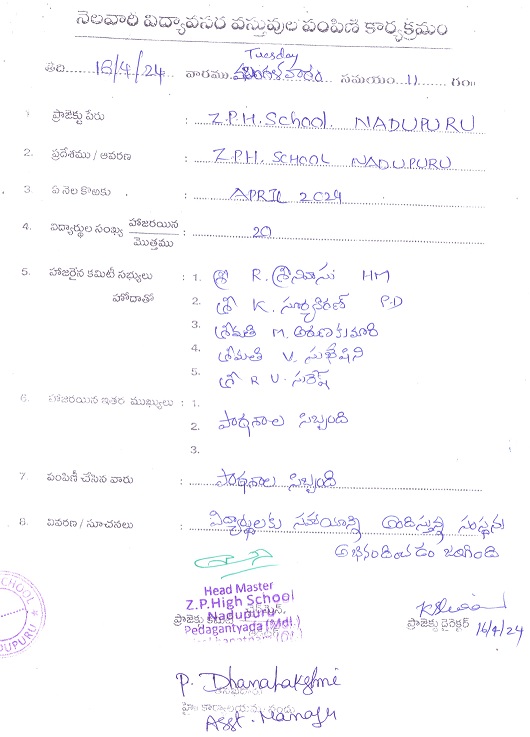 నెలవారీ విద్యావసర వస్తువుల పంపిణీ కార్యక్రమం
తేది. 16/4/24 వారము. Tuesday మంగళవారం సమయం. 11 గం॥
1. ప్రాజెక్టు పేరు : Z.P.H. School. NADUPURU
2. ప్రదేశము / ఆవరణ : Z.P.H. SCHOOL NADUPURU
3. ఏ నెల కొఱకు : APRIL 2024
4. విద్యార్థుల సంఖ్య హాజరయిన / మొత్తము : 20
5. హాజరైన కమిటీ సభ్యులు : 1. శ్రీ R. శ్రీనివాసు HM
హోదాతో 2. శ్రీ K. సూర్యకిరణ్ P.D
3. శ్రీమతి M. అరుణకుమారి
4. శ్రీమతి V. సుభాషిని
5. శ్రీ R V. సురేష్
6. హాజరయిన ఇతర ముఖ్యులు : 1.
2. పాఠశాల సిబ్బంది
3.
7. పంపిణీ చేసిన వారు : పాఠశాల సిబ్బంది
8. వివరణ / సూచనలు : విద్యార్థులకు సహాయాన్ని అందిస్తున్న సంస్థను
అభినందించడం జరిగింది
Head Master
Z.P.High School
Nadupuru
Pedagantyada (Mdl.)
ప్రాజెక్టు
ప్రాజెక్టు డైరెక్టర్ 16/4/24
SCHOOL
P. Dhanalakshmi
Asst. Manager